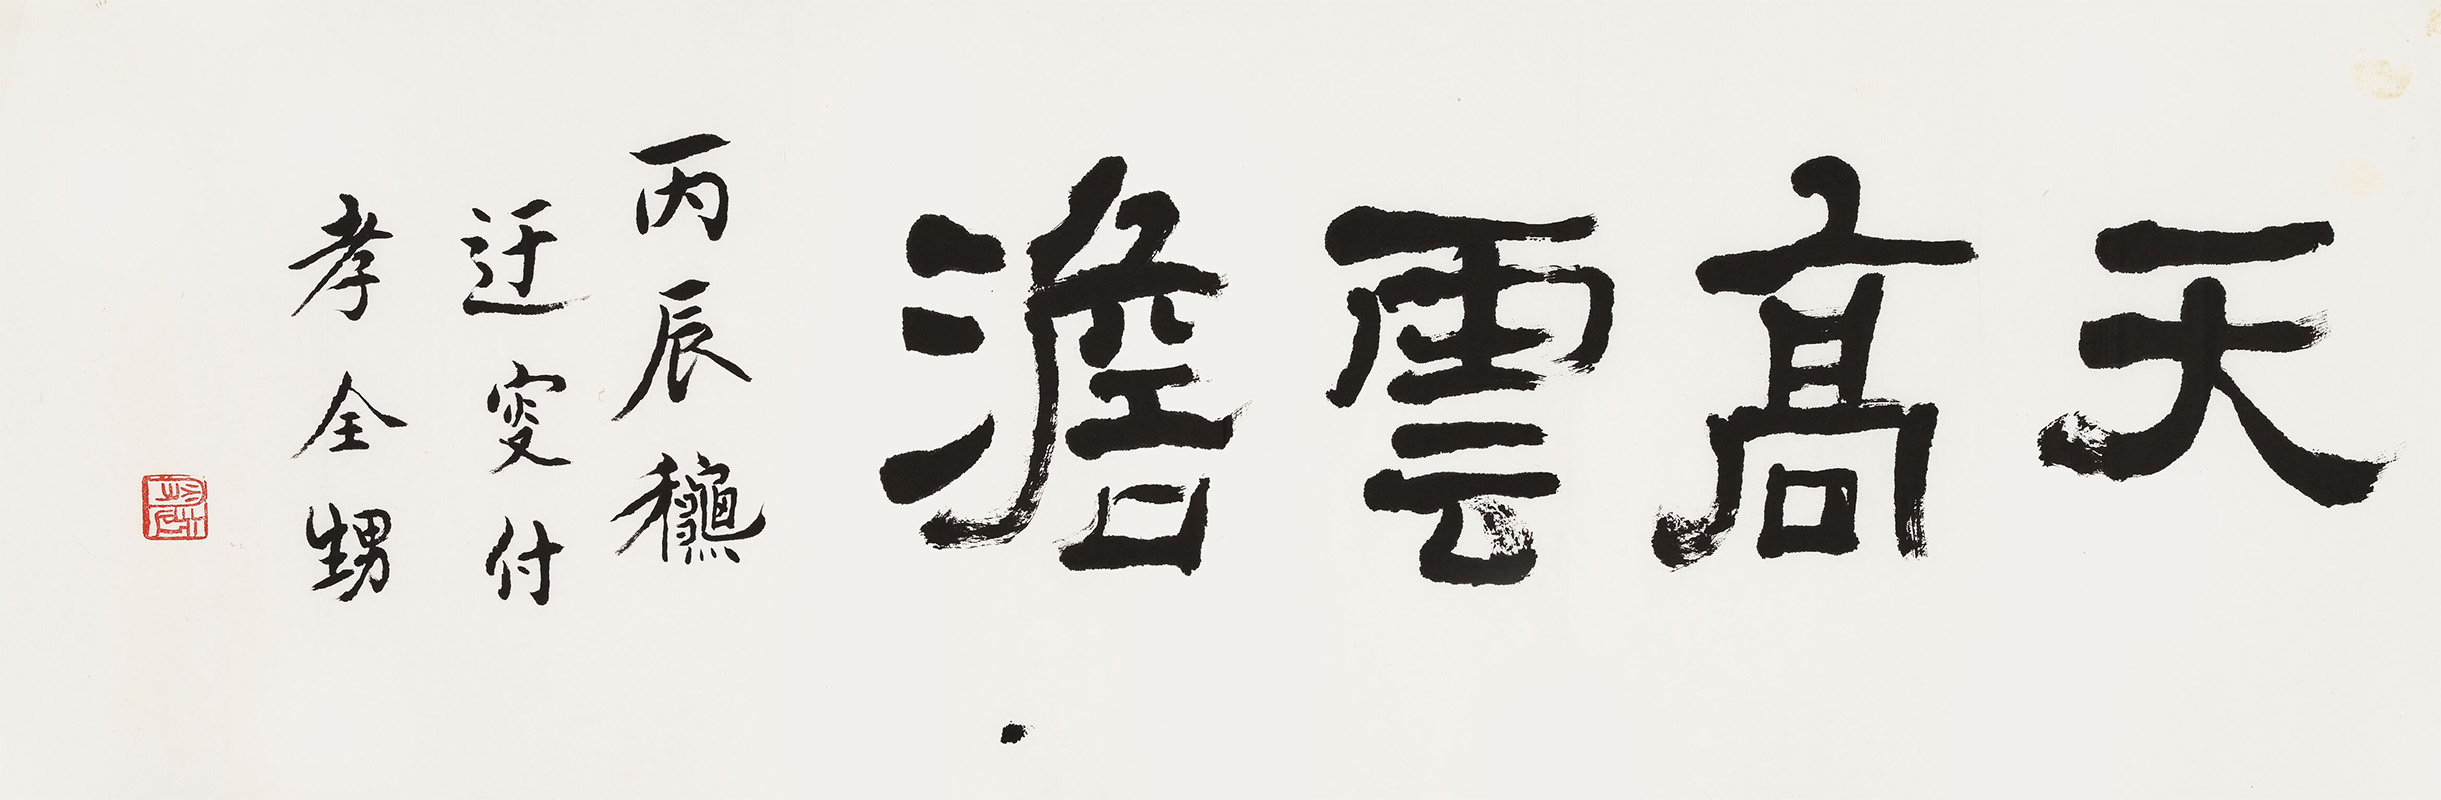 天高雲澹
丙辰龝
迂叜付
孝全甥